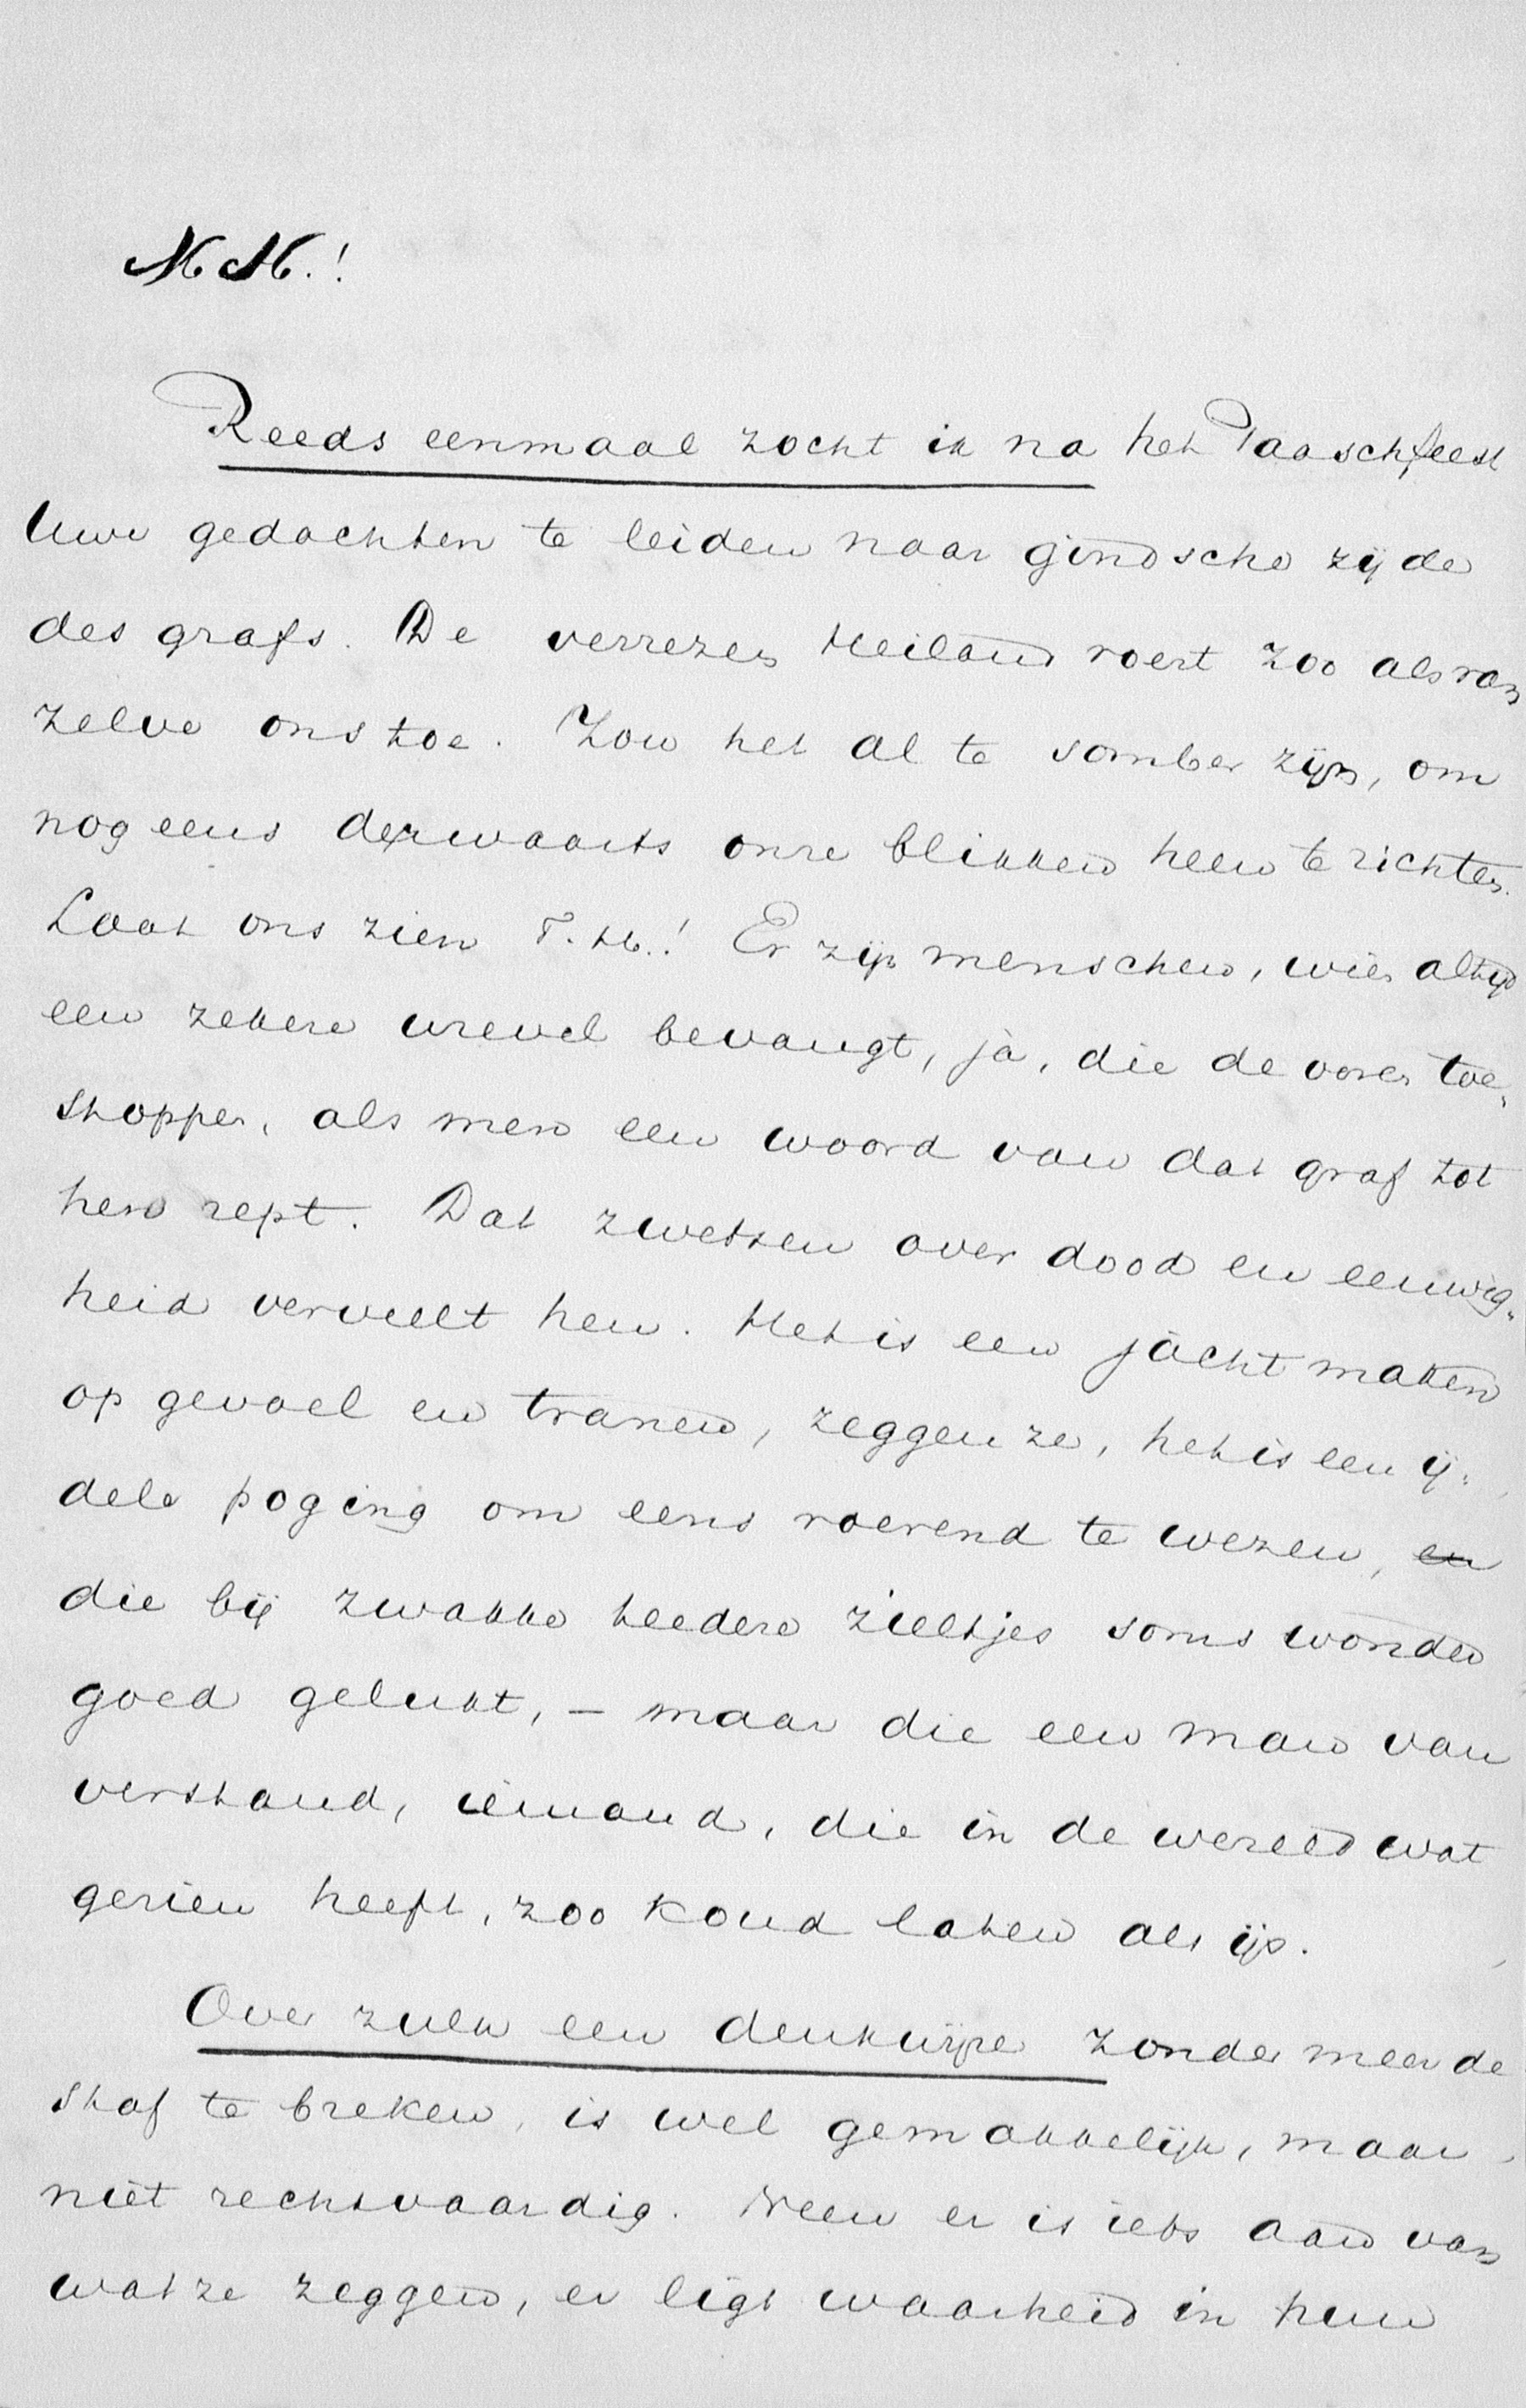 M.H.!
Reeds eenmaal zocht ik na het Paaschfeest
Uwe gedachten te leiden naar gindsche zijde
des grafs. De verrezen Heiland voert zoo als van
zelve ons toe. Zou het al te somber zijn, om
nog eens derwaarts onze blikken heen te richten.
Laat ons zien T.H.! Er zijn menschen, wier altijd
een zekere wrevel bevangt, ja, die de ooren toe-
stoppen, als men een woord van dat graf tot
hen rept. Dat zwetsen over dood en eeuwig-
heid verveelt hen. Het is een jacht maken
op gevoel en tranen, zeggen ze, het is een ij-
dele poging om eens roerend te wezen, en
die bij zwakke teedere zieltjes soms wonder
goed gelukt, – maar die een man van
verstand, iemand, die in de wereld wat
gezien heeft, zoo koud laten als ijs.
Over zulk een denkwijze zonder meer de
staf te breken, is wel gemakkelijk, maar
niet rechtvaardig. Neen er is iets aan van
wat ze zeggen, er ligt waarheid in hun